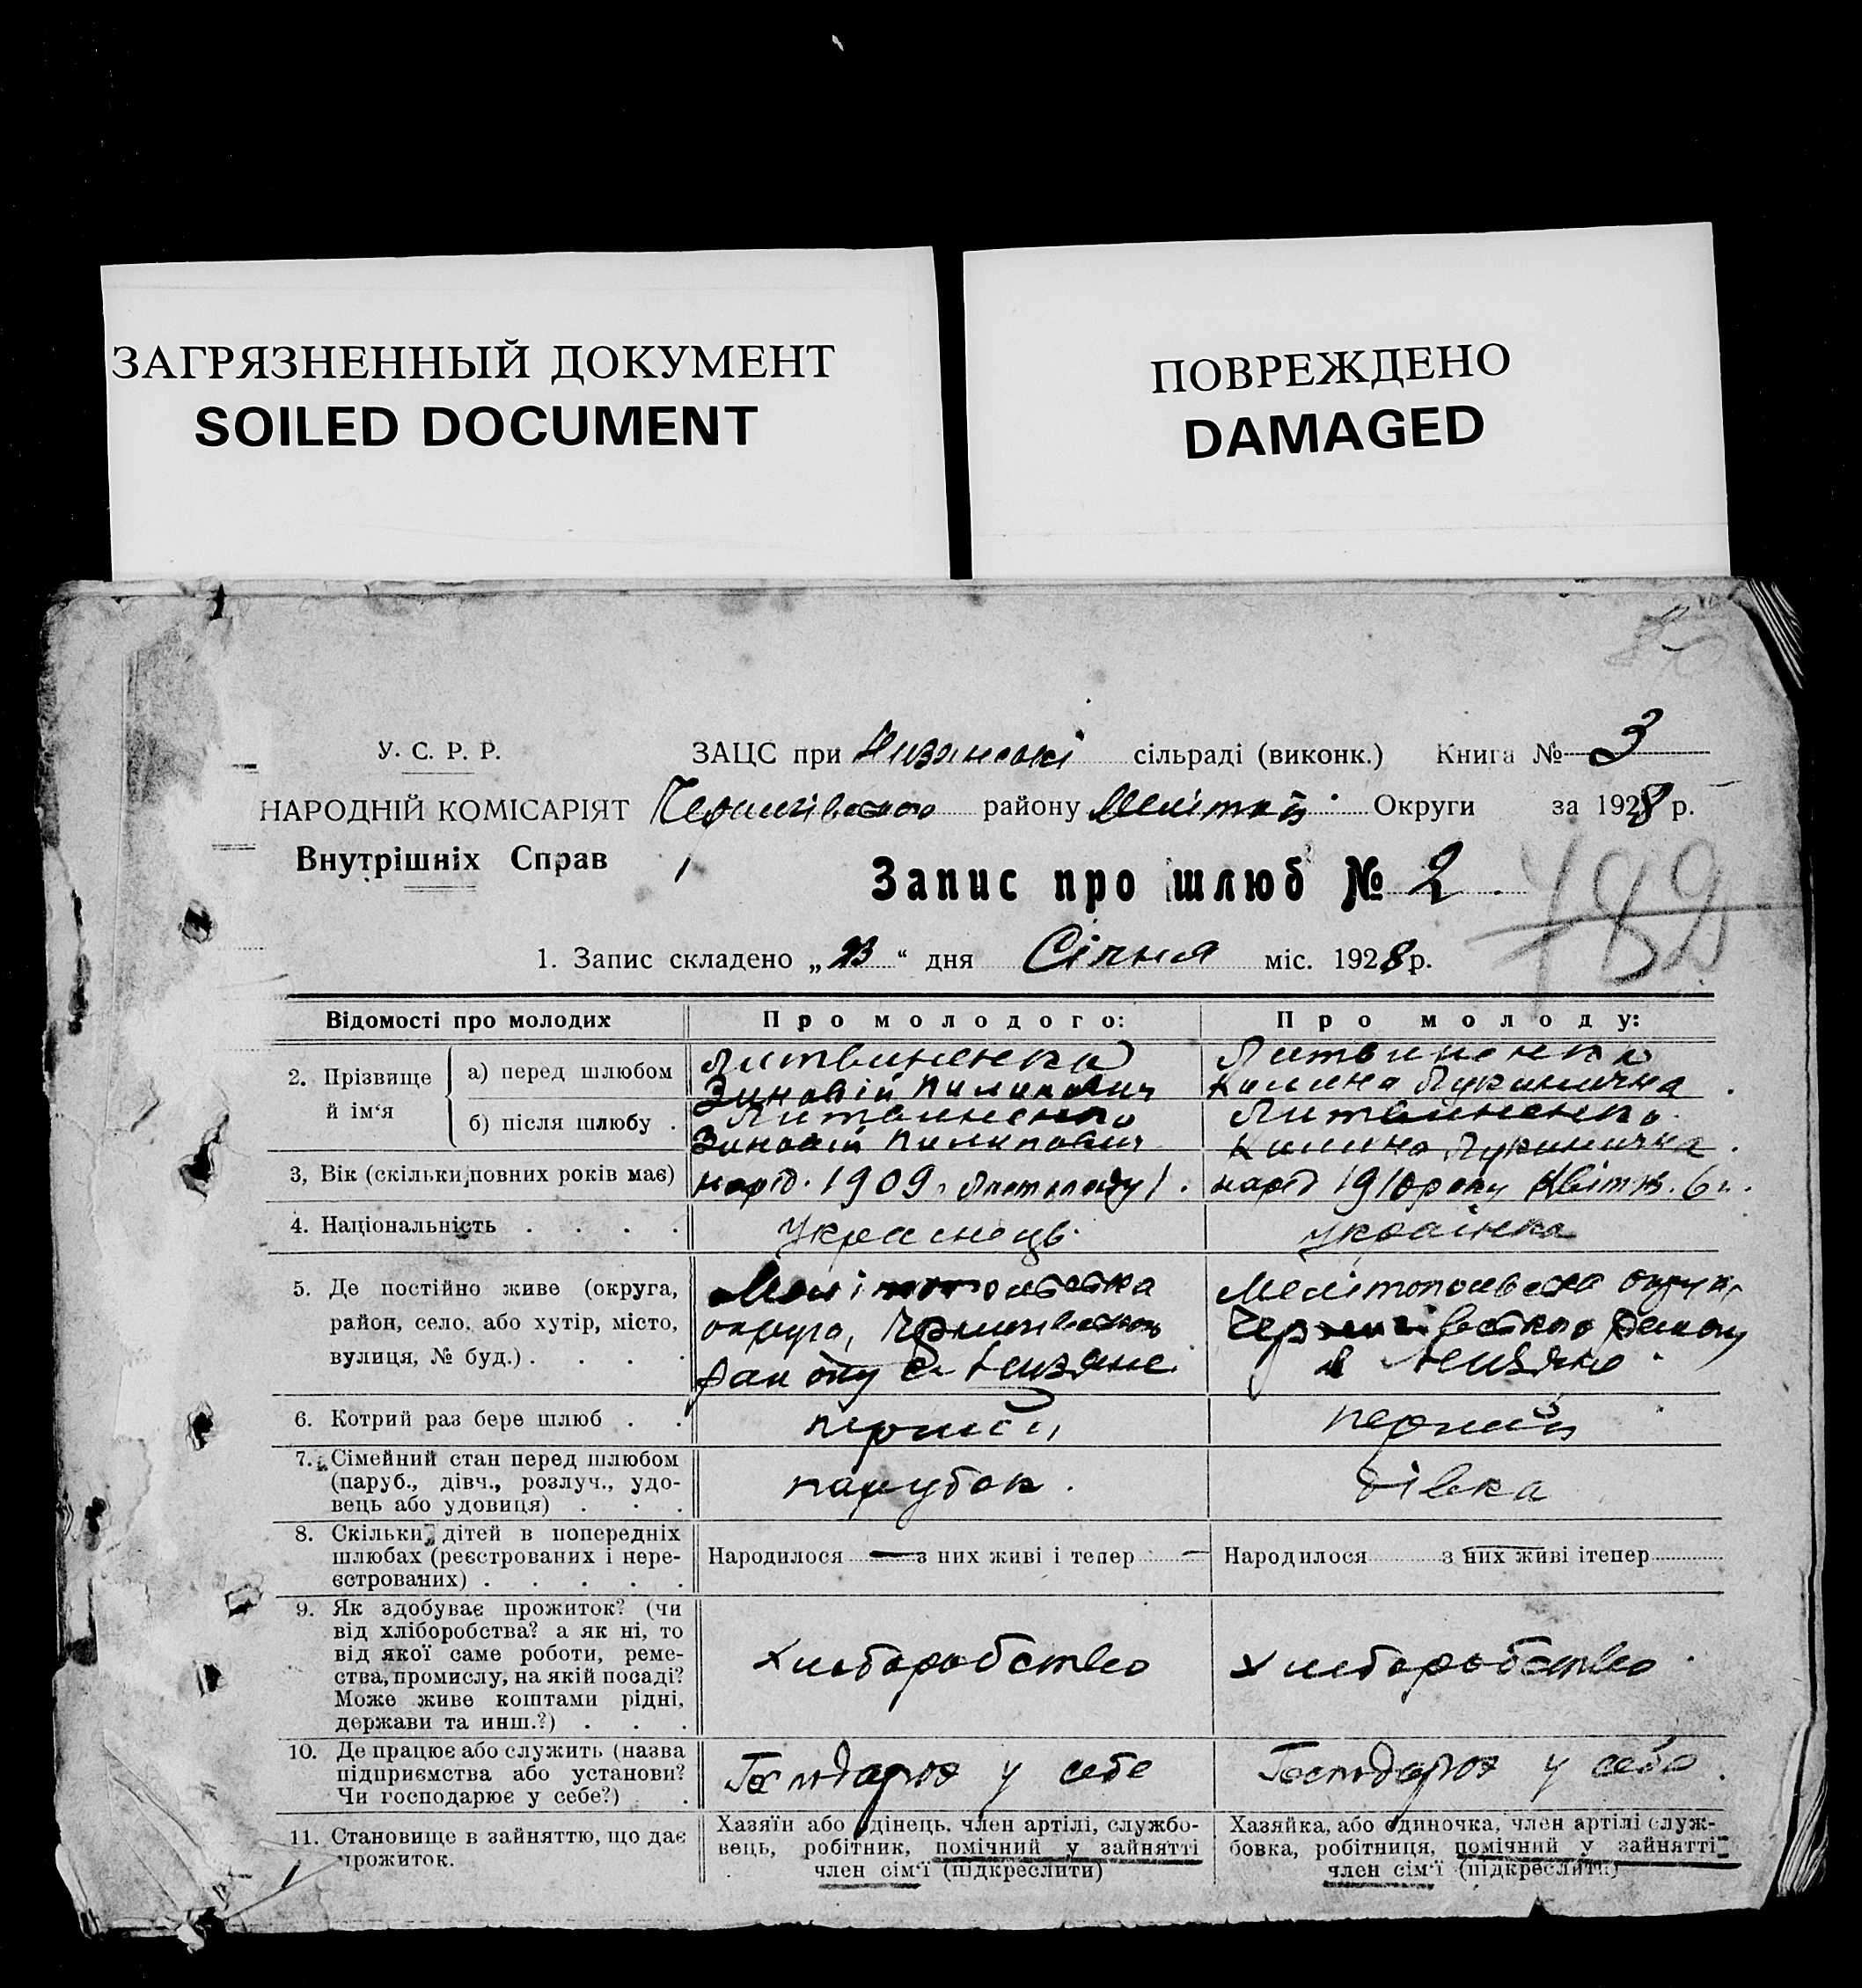 ЗАГРЯЗНЕННЫЙ ДОКУМЕНТ
SOILED DOCUMENT
ПОВРЕЖДЕНО
DAMAGED
У. С. Р. Р.
НАРОДНІЙ КОМІСАРІЯТ
Внутрішніх Справ
ЗАЦС при сільраді (виконк.) Книга № 3
району Округи за 1928 р.
Запис про шлюб № 2
189
1. Запис складено „23“ дня Січня міс. 1928 р.
Відомості про молодих
Про молодого:
Про молоду:
2. Прізвище й ім‘я
а) перед шлюбом
Литвиненко
Зиновій Пилипович
Литвиненко
Килина
б) після шлюбу .
Литвиненко
Зиновій Пилипович
Литвиненко
Килина
3, Вік (скільки повних років має)
нарід. 1909, Листопаду 1.
нарід 1910 року Квітн. 6 .
4. Національність . . . .
Українець.
українка
5. Де постійно живе (округа,
район, село, або хутір, місто,
вулиця, № буд.) . . . .
Мелітопольська
округа,
району с.
Мелітопольська округа
Чернигівського району
6. Котрий раз бере шлюб . .
перший
перший
7. Сімейний стан перед шлюбом
(паруб., дівч., розлуч., удо-
вець або удовиця) . . .
парубок.
дівка
8. Скільки дітей в попередніх
шлюбах (реєстрованих і нере-
єстрованих) . . . . .
Народилося — з них живі і тепер —
Народилося з них живі ітепер
9. Як здобуває прожиток? (чи
від хліборобства? а як ні, то
від якої саме роботи, реме-
ства, промислу, на якій посаді?
Може живе коштами рідні,
держави та инш.?) . . .
Хліборобство
Хліборобство
10. Де працює або служить (назва
підприємства або установи?
Чи господарює у себе?) .
Господарює у себе
Господарює у себе
11. Становище в зайняттю, що дає
прожиток.
Хазяїн або одінець. член артілі, службо-
вець, робітник, помічний у зайнятті
член сім‘ї (підкреслити)
Хазяйка, або одиночка, член артілі служ-
бовка, робітниця, помічний у зайнятті
член сім‘ї (підкреслити)